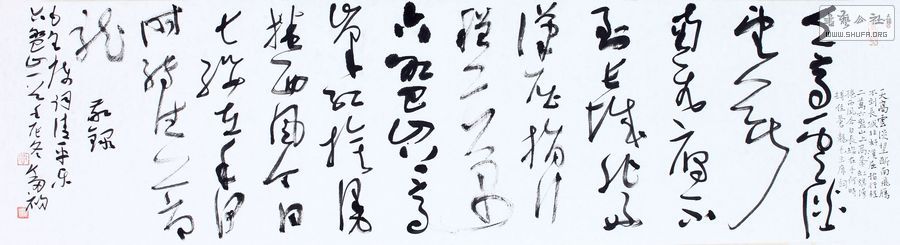 書藝公社
WWW.SHUFA.ORG
天高雲淡
望斷
南飛雁不
到長城非好
漢屈指行
程二萬
六盤山上高
峰紅旗漫
捲西風今日
長纓在手何
時縛住蒼
龍
敬錄
毛主席詞清平樂
六盤山一九
天高雲淡望斷南飛雁
不到長城非好漢屈指行程
二萬六盤山上高峯紅旗漫
捲西風今日長纓在手何時
縛住蒼龍毛主席詞